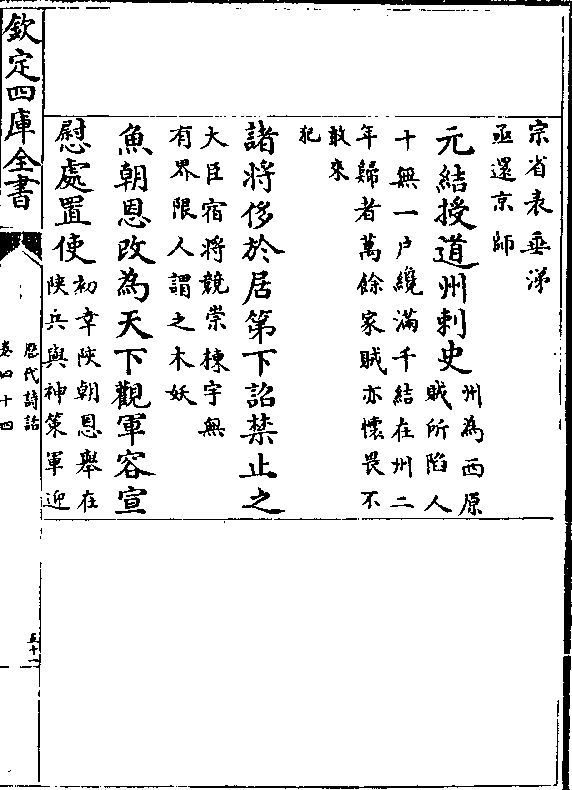 宗省表垂涕
亟還京師
元結授道州刺史
州為西原
賊所陷人
十無一户纔滿千結在州二
年歸者萬餘家賊亦懷畏不
敢來
犯
諸將侈於居第下詔禁止之
大臣宿將競崇棟宇無
有界限人謂之木妖
魚朝恩改為天下觀軍容宣
慰處置使
初幸陜朝恩舉在
陜兵與神策軍迎
欽定四庫全書
歷代詩話
卷四十四
五十一